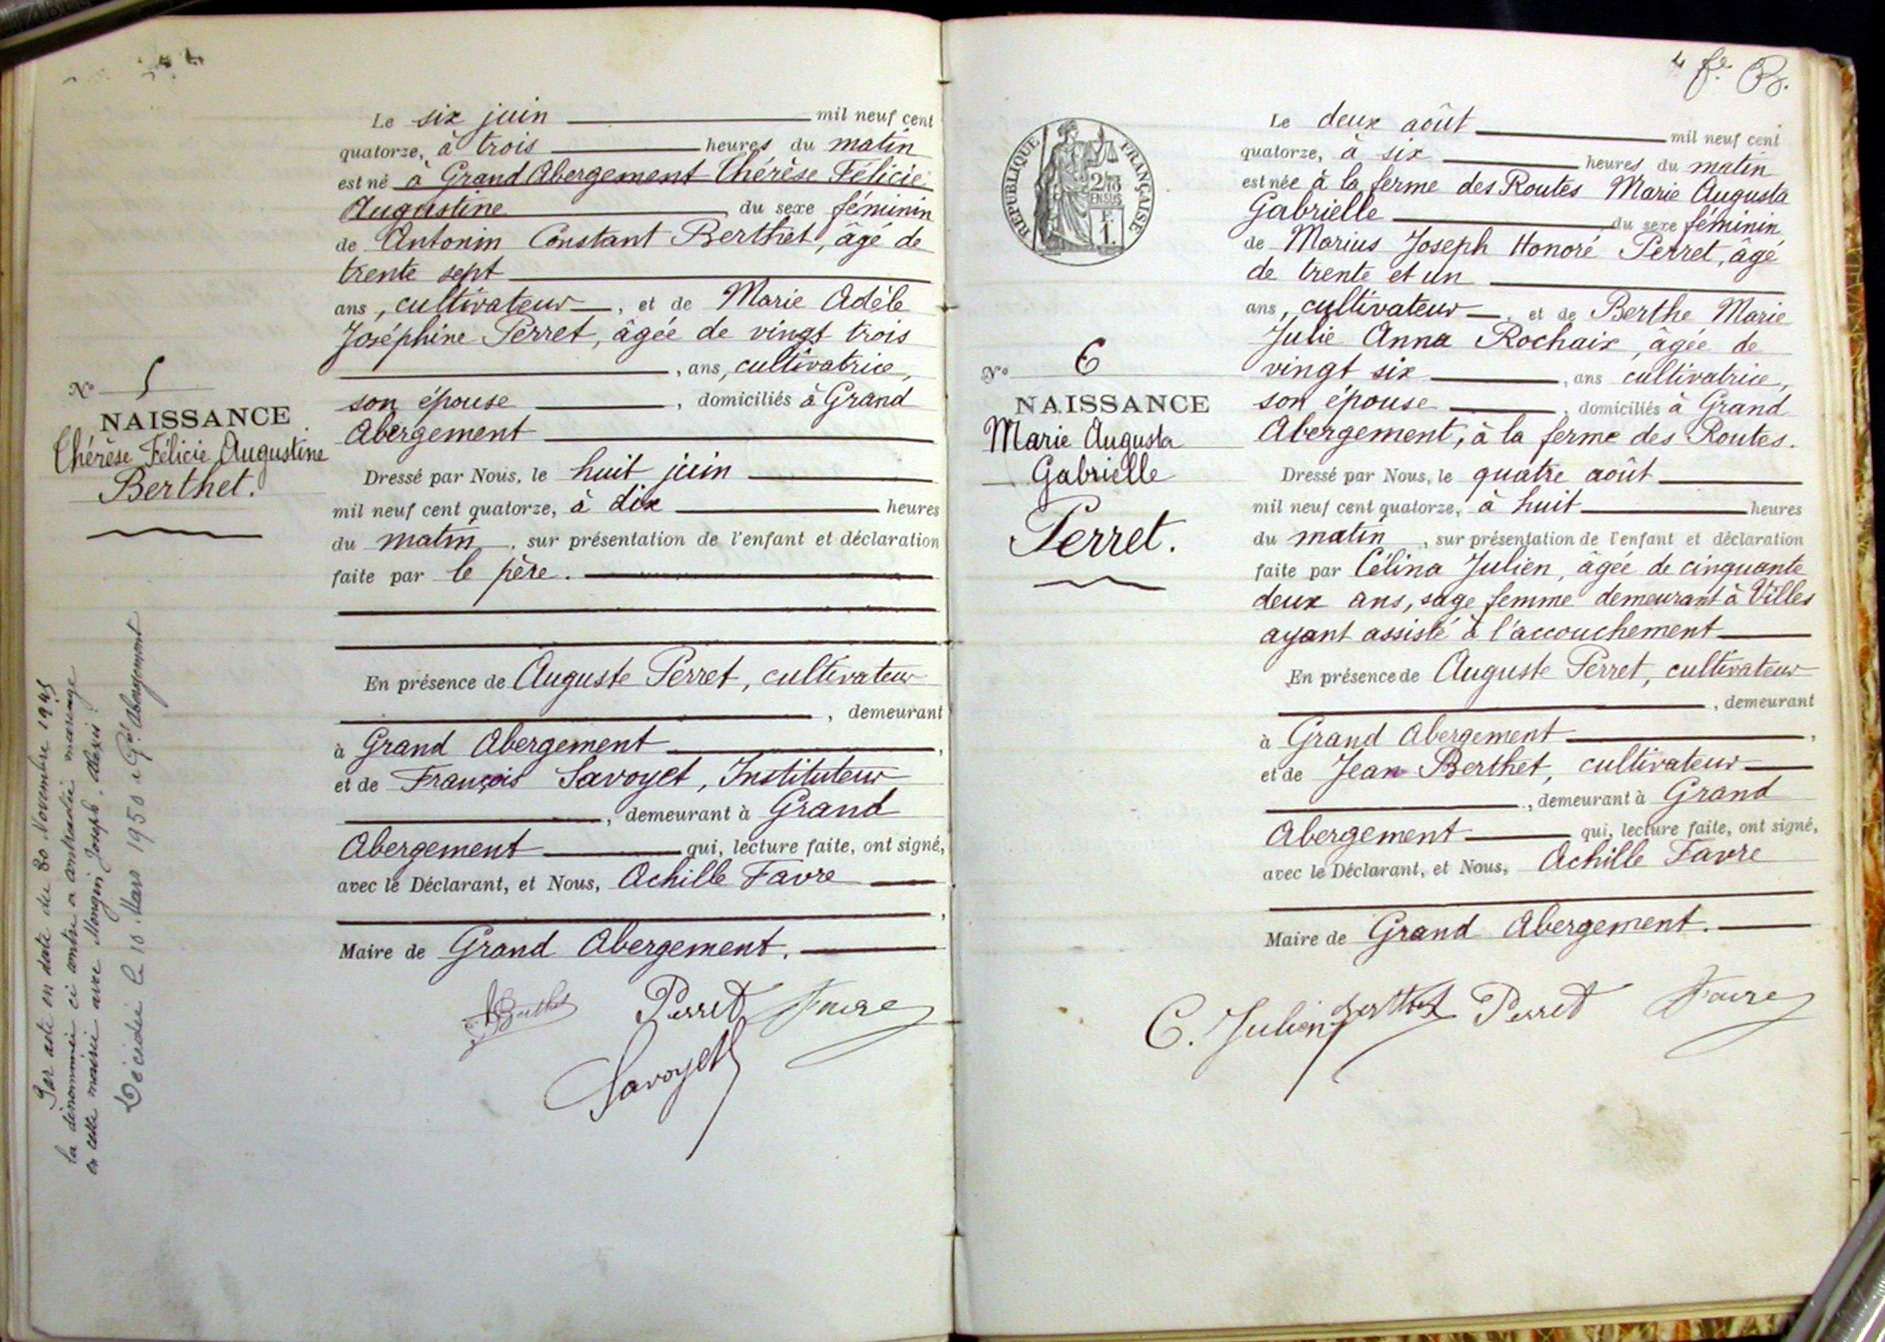 Le six juin mil neuf cent
quatorze, à trois heures du matin
est né à Grand Abergement Thérèse Félicie
Augustine du sexe féminin
de Antonin Constant Berthet, âgé de
trente sept
ans, cultivateur, et de Marie Adèle
Joséphine Perret, âgée de vingt trois
, ans, cultivatrice,
son épouse, domiciliés à Grand
Abergement
Dressé par Nous, le huit juin
mil neuf cent quatorze, à dix heures
du matin, sur présentation de l'enfant et déclaration
faite par le père.
En présence de Auguste Perret, cultivateur
, demeurant
à Grand Abergement,
et de François Savoyet, Instituteur
, demeurant à Grand
Abergement qui, lecture faite, ont signé,
avec le Déclarant, et Nous, Achille Favre
,
Maire de Grand Abergement.
Berthet Perret Favre
Savoyet
N° 5
NAISSANCE
Thérèse Félicie Augustine
Berthet.
Par acte en date du 30 Novembre 1945
la dénommée ci contre a contracté mariage
en cette mairie avec Mongin Joseph. Alexis
Décédée le 10 Mars 1950 à Gd Abergement
4 fe
REPUBLIQUE FRANÇAISE
2/10
EN SUS
1 F.
N° 6
NAISSANCE
Marie Augusta
Gabrielle
Perret.
Le deux août mil neuf cent
quatorze, à six heures du matin
est née à la ferme des Routes Marie Augusta
Gabrielle du sexe féminin
de Marius Joseph Honoré Perret, âgé
de trente et un
ans, cultivateur, et de Berthe Marie
Julie Anna Rochaix, âgée de
vingt six, ans cultivatrice,
son épouse, domiciliés à Grand
Abergement, à la ferme des Routes.
Dressé par Nous, le quatre août
mil neuf cent quatorze, à huit heures
du matin, sur présentation de l'enfant et déclaration
faite par Célina Julien, âgée de cinquante
deux ans, sage femme demeurant à Villes
ayant assisté à l'accouchement
En présence de Auguste Perret, cultivateur
, demeurant
à Grand Abergement,
et de Jean Berthet, cultivateur
, demeurant à Grand
Abergement qui, lecture faite, ont signé,
avec le Déclarant, et Nous, Achille Favre
Maire de Grand Abergement.
C. Julien Berthet Perret Favre